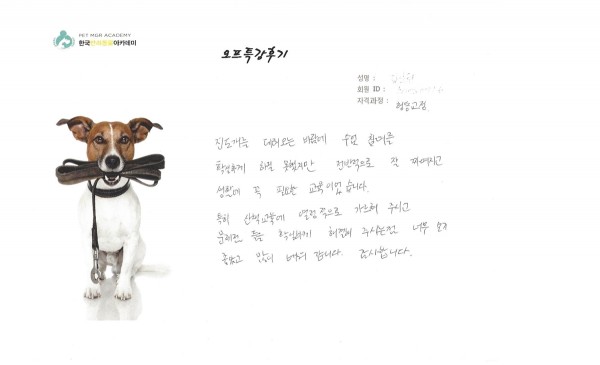 PET MGR ACADEMY
한국반려동물아카데미
오프특강후기
성명 :
회원 ID :
자격과정 : 행동교정
진도개를 데려오는 바람에 수업 참여를
활발하게 하진 못했지만 전반적으로 잘 짜여지고
생활에 꼭 필요한 교육이었습니다.
특히 산책교육에 열정적으로 가르쳐 주시고
문제점 등을 확실하게 해결해 주시는건 너무
좋았고 많이 배워 갑니다. 감사합니다.